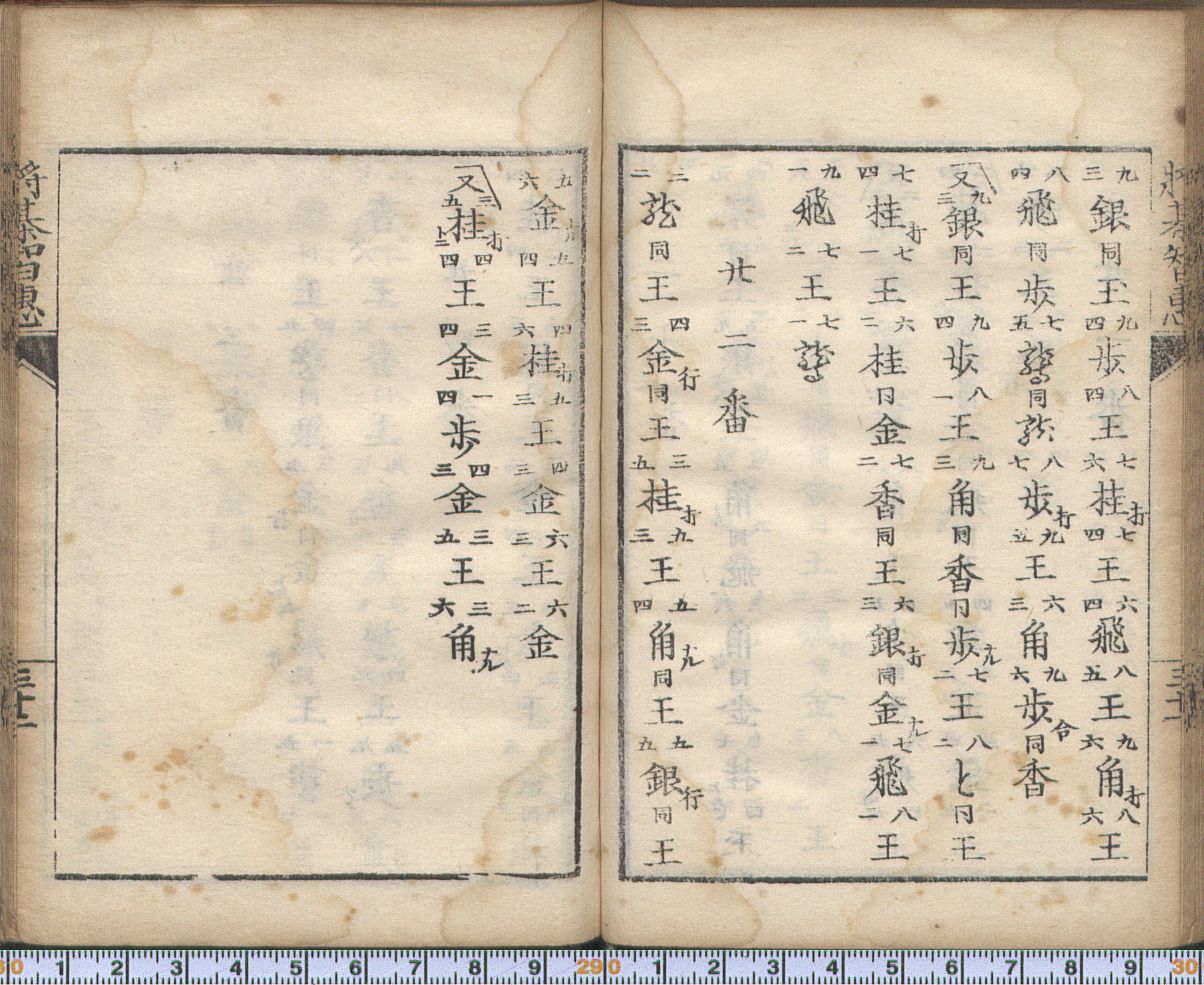 將棊智恵
三十一
九三銀同王九四歩八四王七六桂打七四王六四飛八五王九六角打八六王
八四飛同歩七五同龍八七歩打九五王六三角九六歩合同香
又九三銀同王九四歩八一王九三角同香同歩成七二王八二と同王
七四桂打七一王六二桂同金七二香同王六三銀打同金成七一飛八二王
九一飛七二王七一
廿二番
三二龍同王四三金行同王三五桂打五三王五四角成同王五五銀行同王
五六金打五四王四六桂打五三王四三金六三王六二金
又三五桂打四四王三四金一四歩四三金三五王三六角成
將棊智恵
三十二